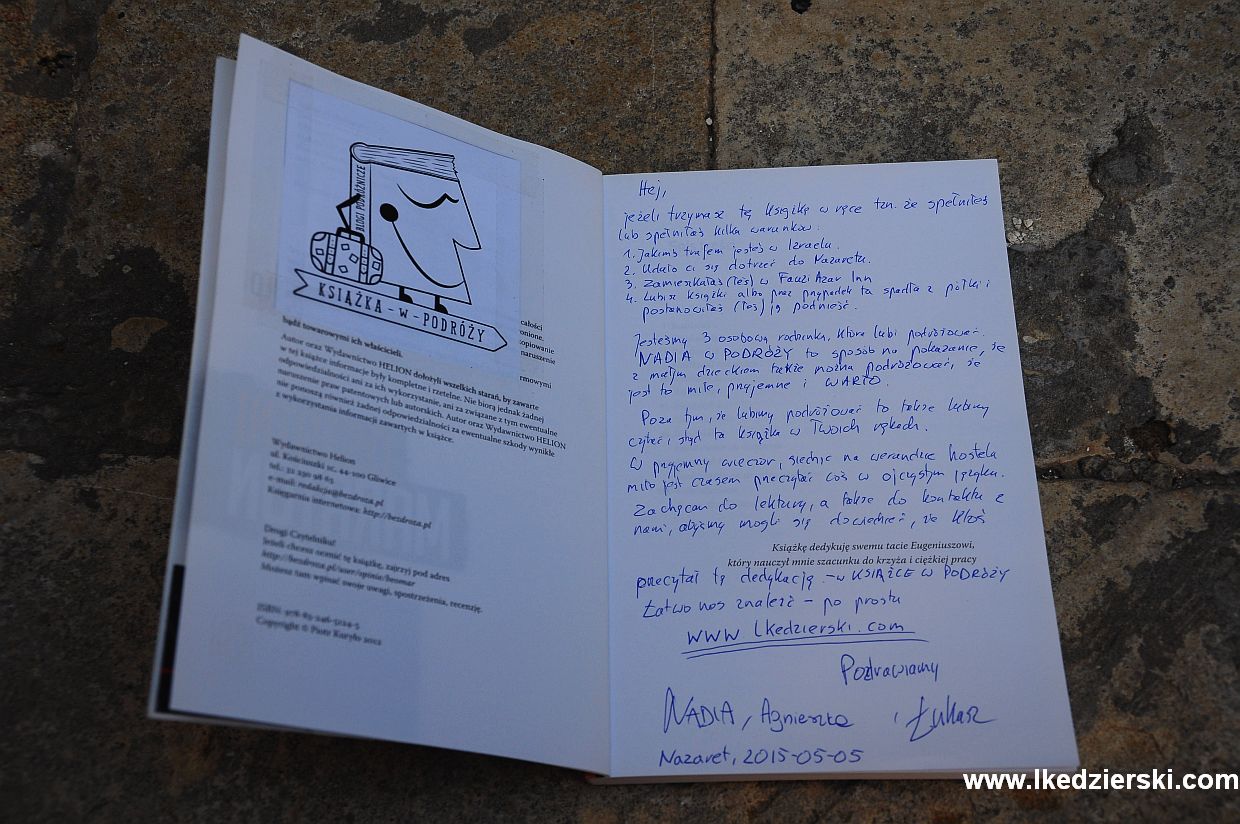 BLOGI PODRÓŻNICZE
KSIĄŻKA - W - PODRÓŻY
całości
onione.
kopiowanie
naruszenie
firmowymi
bądź towarowymi ich właścicieli.
Autor oraz Wydawnictwo HELION dołożyli wszelkich starań, by zawarte
w tej książce informacje były kompletne i rzetelne. Nie biorą jednak żadnej
odpowiedzialności ani za ich wykorzystanie, ani za związane z tym ewentualne
naruszenie praw patentowych lub autorskich. Autor oraz Wydawnictwo HELION
nie ponoszą również żadnej odpowiedzialności za ewentualne szkody wynikłe
z wykorzystania informacji zawartych w książce.
Wydawnictwo Helion
ul. Kościuszki 1c, 44-100 Gliwice
tel.: 32 230 98 63
e-mail: redakcja@bezdroza.pl
Księgarnia internetowa: http://bezdroza.pl
Drogi Czytelniku!
Jeżeli chcesz ocenić tę książkę, zajrzyj pod adres
http://bezdroza.pl/user/opinie/besmar
Możesz tam wpisać swoje uwagi, spostrzeżenia, recenzję.
ISBN: 978-83-246-5124-5
Copyright © Piotr Kuryło 2012
Hej,
jeżeli trzymasz tę książkę w ręce tzn. że spełniłeś
lub spełniłaś kilka warunków.
1. Jakimś trafem jesteś w Izraelu.
2. Udało ci się dotrzeć do Nazaretu.
3. Zamieszkałaś (łeś) w Fauzi Azar Inn
4. Lubisz książki albo przez przypadek ta spadła z półki i
postanowiłaś (łeś) ją podnieść.
Jesteśmy 3 osobową rodzinką, która lubi podróżować.
NADIA W PODRÓŻY to sposób na pokazanie, że
z małym dzieckiem także można podróżować, że
jest to miłe, przyjemne i WARTO.
Poza tym, że lubimy podróżować to także lubimy
czytać, stąd ta książka w Twoich rękach.
W przyjemny wieczór, siedząc na werandzie hostelu
miło jest czasem przeczytać coś w ojczystym języku.
Zachęcam do lektury, a także do kontaktu z
nami, abyśmy mogli się dowiedzieć, że ktoś
Książkę dedykuję swemu tacie Eugeniuszowi,
który nauczył mnie szacunku do krzyża i ciężkiej pracy
przeczytał tę dedykację - w KSIĄŻCE W PODRÓŻY
Łatwo nas znaleźć - po prostu
www lkedzierski.com
Pozdrawiamy
NADIA, Agnieszka i Łukasz
Nazaret, 2015-05-05
www.lkedzierski.com